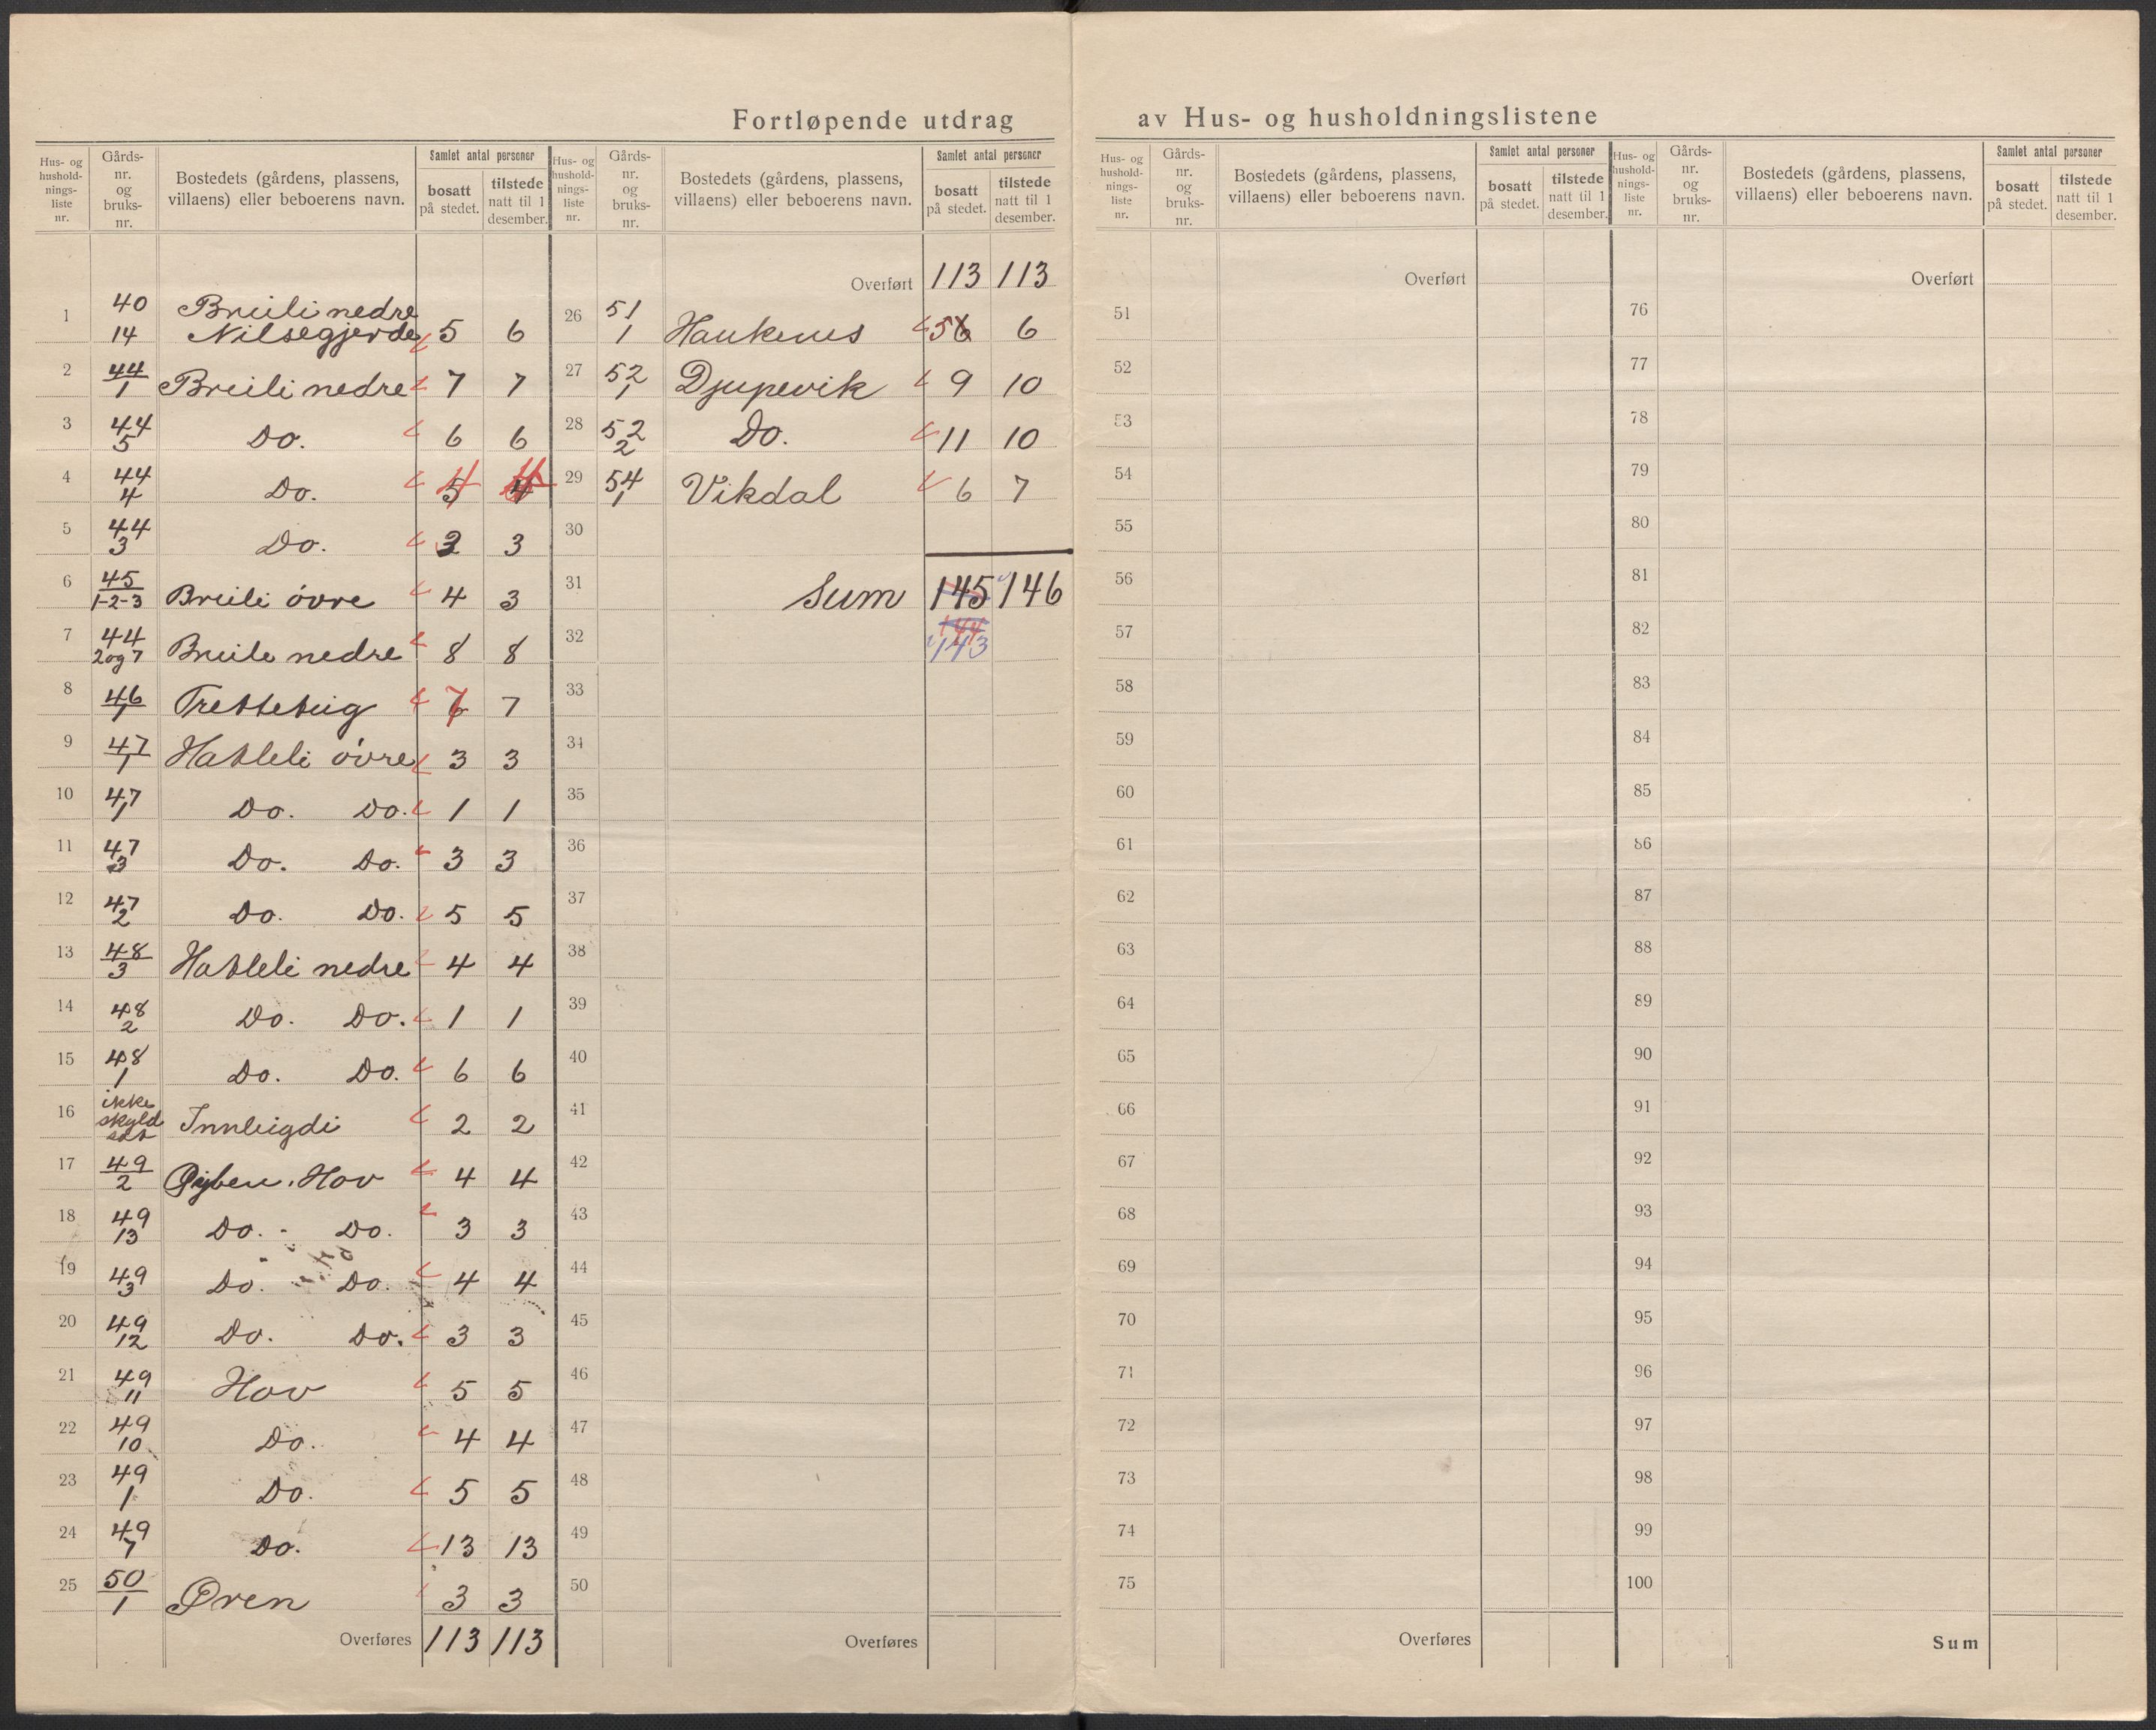 Fortløpende utdrag av Hus- og husholdningslistene
Hus- og husholdnings- liste nr.
Gårds- nr. og bruks- nr.
Bostedets (gårdens, plassens, villaens) eller beboerens navn.
Samlet antal personer
bosatt på stedet.
tilstede natt til 1 desember.
Hus- og husholdnings- liste nr.
Gårds- nr. og bruks- nr.
Bostedets (gårdens, plassens, villaens) eller beboerens navn.
Samlet antal personer
bosatt på stedet.
tilstede natt til 1 desember.
1 40 14 Breili nedre Nilsegjerde 5 6
2 44 1 Breili nedre 7 7
3 44 5 Do. 6 6
4 44 4 Do. 4
5 44 3 Do. 3
6 45 1-2-3 Breili øvre 4 3
7 44 2 og 7 Breile nedre 8 8
8 46 1 Tretteteig 7 7
9 47 1 Hatleli øvre 3 3
10 47 1 Do. Do. 1 1
11 47 3 Do. Do. 3 3
12 47 2 Do. Do. 5 5
13 48 3 Hatleli nedre 4 4
14 48 2 Do. Do. 1 1
15 48 1 Do. Do. 6 6
16 ikke skyld sat Innleigdi 2 2
17 49 2 Hov 4 4
18 49 13 Do. - Do. 3 3
19 49 3 Do. Do. 4 4
20 49 12 Do. Do. 3 3
21 49 11 Hov 5 5
22 49 10 Do. 4 4
23 49 1 Do. 5 5
24 49 7 Do. 13 13
25 50 1 Øren 3 3
Overføres 113 113
Overført 113 113
26 51 1 Haukenes 5 6
27 52 1 Djupevik 9 10
28 52 2 Do. 11 10
29 54 1 Vikdal 6 7
30
31 Sum 145 146
144
32 143
33
34
35
36
37
38
39
40
41
42
43
44
45
46
47
48
49
50
Overføres
Hus- og husholdnings- liste nr.
Gårds- nr. og bruks- nr.
Bostedets (gårdens, plassens, villaens) eller beboerens navn.
Samlet antal personer
bosatt på stedet.
tilstede natt til 1 desember.
Overført
51
52
53
54
55
56
57
58
59
60
61
62
63
64
65
66
67
68
69
70
71
72
73
74
75
Overføres
Hus- og husholdnings- liste nr.
Gårds- nr. og bruks- nr.
Bostedets (gårdens, plassens, villaens) eller beboerens navn.
Samlet antal personer
bosatt på stedet.
tilstede natt til 1 desember.
Overført
76
77
78
79
80
81
82
83
84
85
86
87
88
89
90
91
92
93
94
95
96
97
98
99
100
Sum